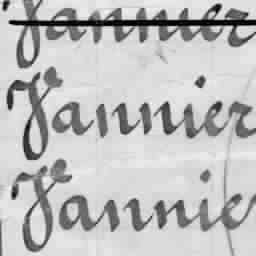 Vannier
Vannier
Vannie